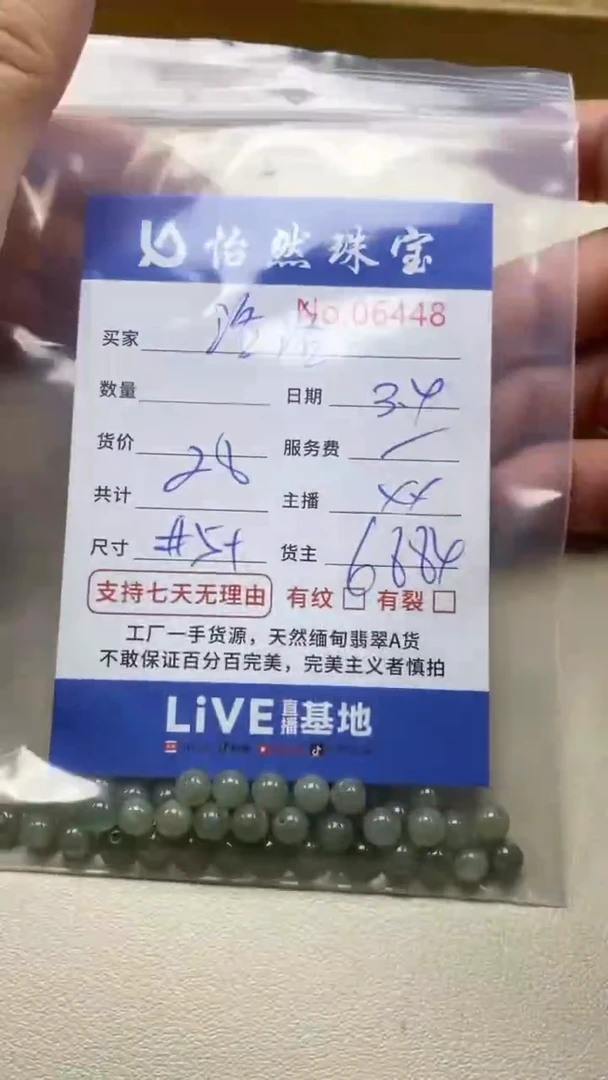 怡然珠宝
No.06448
买家
数量 日期 3.4
货价 28 服务费
共计 主播 xx
尺寸 #5+ 货主 6884
支持七天无理由 有纹 有裂
工厂一手货源，天然缅甸翡翠A货
不敢保证百分百完美，完美主义者慎拍
LiVE直播基地